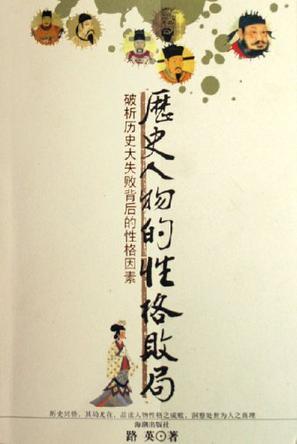 歷史人物的性格敗局
破析历史大失败背后的性格因素
历史兴替，其局尤在，品读人物性格之成败，洞察处世为人之真理
海潮出版社
路英·著